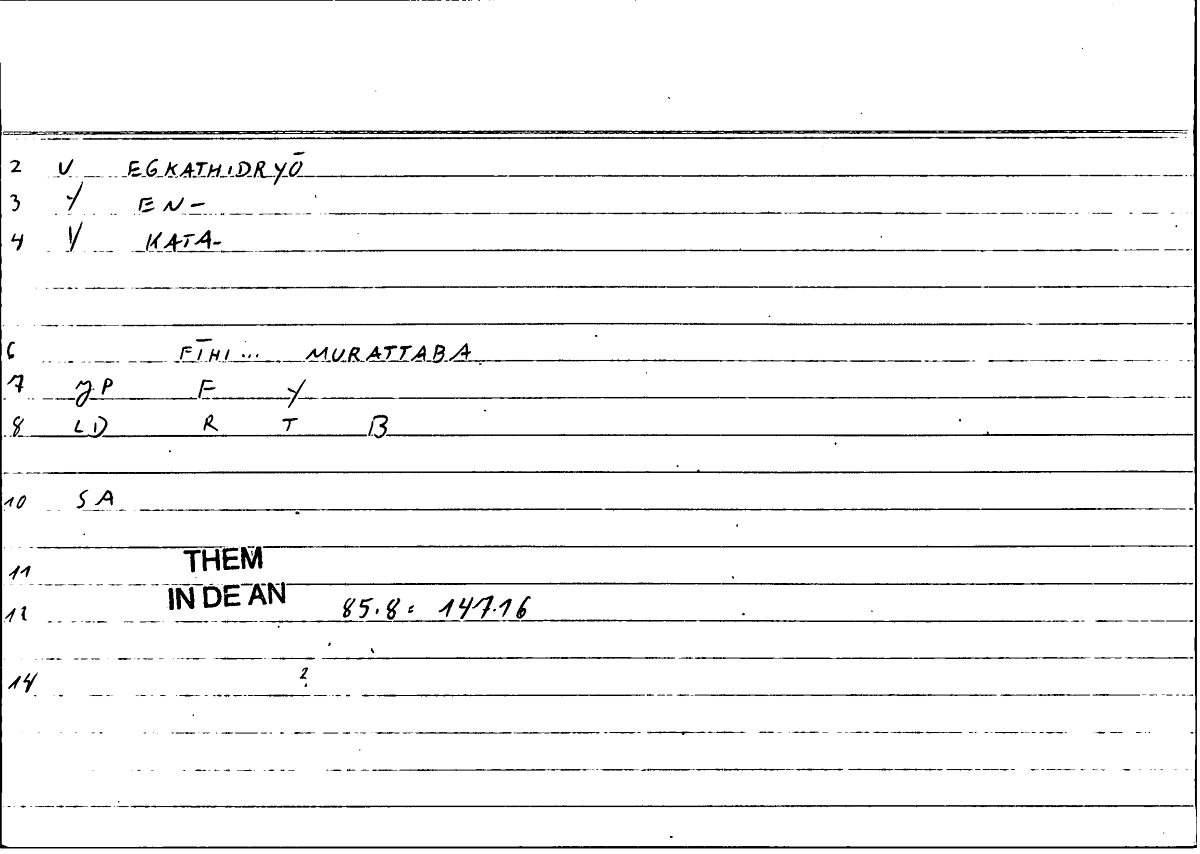 2 V EGKATHIDRYŌ
3 Y EN-
4 V KATA-
6 FĪHI ... MURATTABA
7 JP F Y
8 LD R T B
10 SA
11 THEM
12 IN DE AN 85.8 = 147.16
14 2